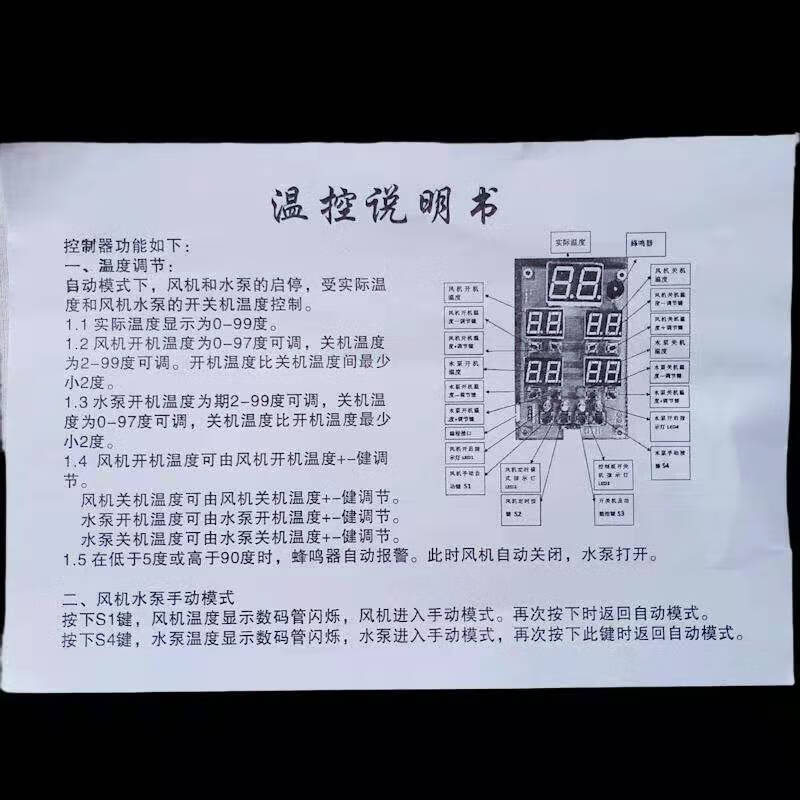 温控说明书
控制器功能如下：
一、温度调节：
自动模式下，风机和水泵的启停，受实际温
度和风机水泵的开关机温度控制。
1.1 实际温度显示为0-99度。
1.2 风机开机温度为0-97度可调，关机温度
为2-99度可调。开机温度比关机温度间最少
小2度。
1.3 水泵开机温度为期2-99度可调，关机温
度为0-97度可调，关机温度比开机温度最少
小2度。
1.4 风机开机温度可由风机开机温度+-健调
节。
风机关机温度可由风机关机温度+-健调节。
水泵开机温度可由水泵开机温度+-健调节。
水泵关机温度可由水泵关机温度+-健调节。
1.5 在低于5度或高于90度时，蜂鸣器自动报警。此时风机自动关闭，水泵打开。
二、风机水泵手动模式
按下S1键，风机温度显示数码管闪烁，风机进入手动模式。再次按下时返回自动模式。
按下S4键，水泵温度显示数码管闪烁，水泵进入手动模式，再次按下此键时返回自动模式。
实际温度
蜂鸣器
风机开机
温度
风机开机温
度-调节键
风机开机温
度+调节键
水泵开机
温度
水泵开机温
度-调节键
水泵开机温
度+调节键
风机开启指
示灯 LED1
风机手动自
动键 S1
风机定时模
式指示灯
LED2
风机定时按
键 S2
控制板开关
机指示灯
LED3
键 S3
风机关机
温度
风机关机温
度-调节键
风机关机温
度+调节键
水泵关机
温度
水泵关机温
度-调节键
水泵关机温
度+调节键
水泵开启指
示灯 LED4
水泵手动按
键 S4
8.8.
8.8.
8.8.
8.8.
8.8.